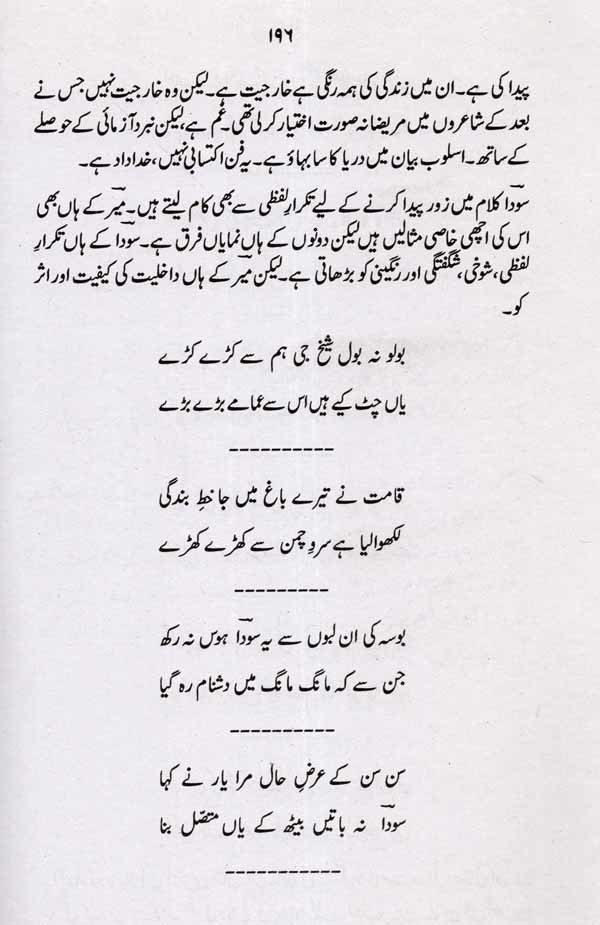 ۱۹۶
پیدا کی ہے۔ ان میں زندگی کی ہمہ رنگی ہے خارجیت ہے۔ لیکن وہ خارجیت نہیں جس نے
بعد کے شاعروں میں مریضانہ صورت اختیار کر لی تھی۔ غم ہے، لیکن نبرد آزمائی کے حوصلے
کے ساتھ۔ اسلوب بیان میں دریا کا سا بہاؤ ہے۔ یہ فن اکتسابی نہیں، خداداد ہے۔
سوداؔ کلام میں زور پیدا کرنے کے لیے تکرارِ لفظی سے بھی کام لیتے ہیں۔ میرؔ کے ہاں بھی
اس کی اچھی خاصی مثالیں ہیں لیکن دونوں کے ہاں نمایاں فرق ہے۔ سوداؔ کے ہاں تکرارِ
لفظی، شوخی، شگفتگی اور رنگینی کو بڑھاتی ہے۔ لیکن میرؔ کے ہاں داخلیت کی کیفیت اور اثر
کو۔
بولو نہ بول شیخ جی ہم سے کڑے کڑے
یاں چٹ کیے ہیں اس سے عمامے بڑے بڑے
----------
قامت نے تیرے باغ میں جا خطِ بندگی
لکھوا لیا ہے سروِ چمن سے کھڑے کھڑے
---------
بوسہ کی ان لبوں سے یہ سوداؔ ہوس نہ رکھ
جن سے کہ مانگ مانگ میں دشنام رہ گیا
----------
سن سن کے عرضِ حال مرا یار نے کہا
سوداؔ نہ باتیں بیٹھ کے یاں متصّل بنا
-----------